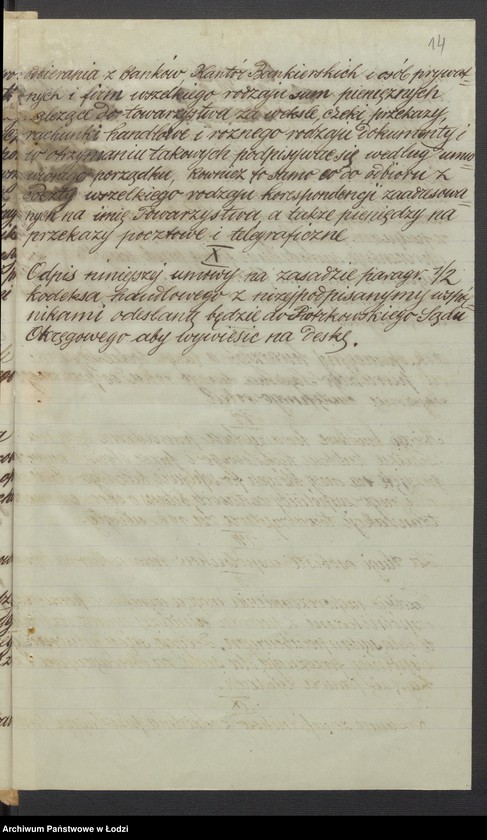 14
odbierania z banków Kantor Bankierskich i osób prywat=
nych i firm wszelkiego rodzaju sum pieniężnych
należące do towarzystwa za weksle, czeki, przekazy,
rachunki handlowe i roznego rodzaju dokumenty i
po otrzymaniu takowych podpisywać się według umó=
wionego porządku, również to samo co do odbioru z
poczty wszelkiego rodzaju korespondencji zaadresowa=
nych na imię Towarzystwa, a także pieniędzy na
przekazy pocztowe i telegraficzne
X
Odpis niniejszej umowy na zasadzie paragr.
kodeksa handlowego z niżejpodpisanymi wspól=
nikami odesłaną będzie do Piotrkowskiego Sądu
Okręgowego aby wywiesić na deskę.
Archiwum Państwowe w Łodzi